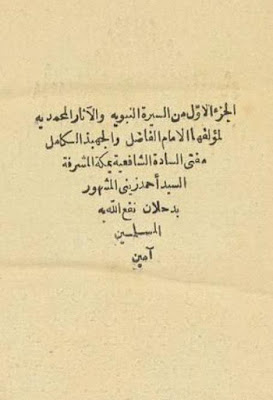 الجزء الاول من السيرة النبويه والآثار المحمديه
لمؤلفها الامام الفاضل والجهبذ الكامل
مفتى السادة الشافعية بمكة المشرفة
السيد أحمد زينى المشهور
بدحلان نفع الله به
المسلمين
آمين